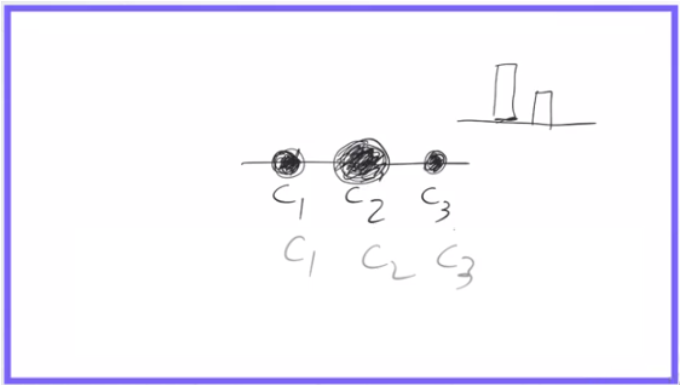 C1 C2 C3
C1 C2 C3